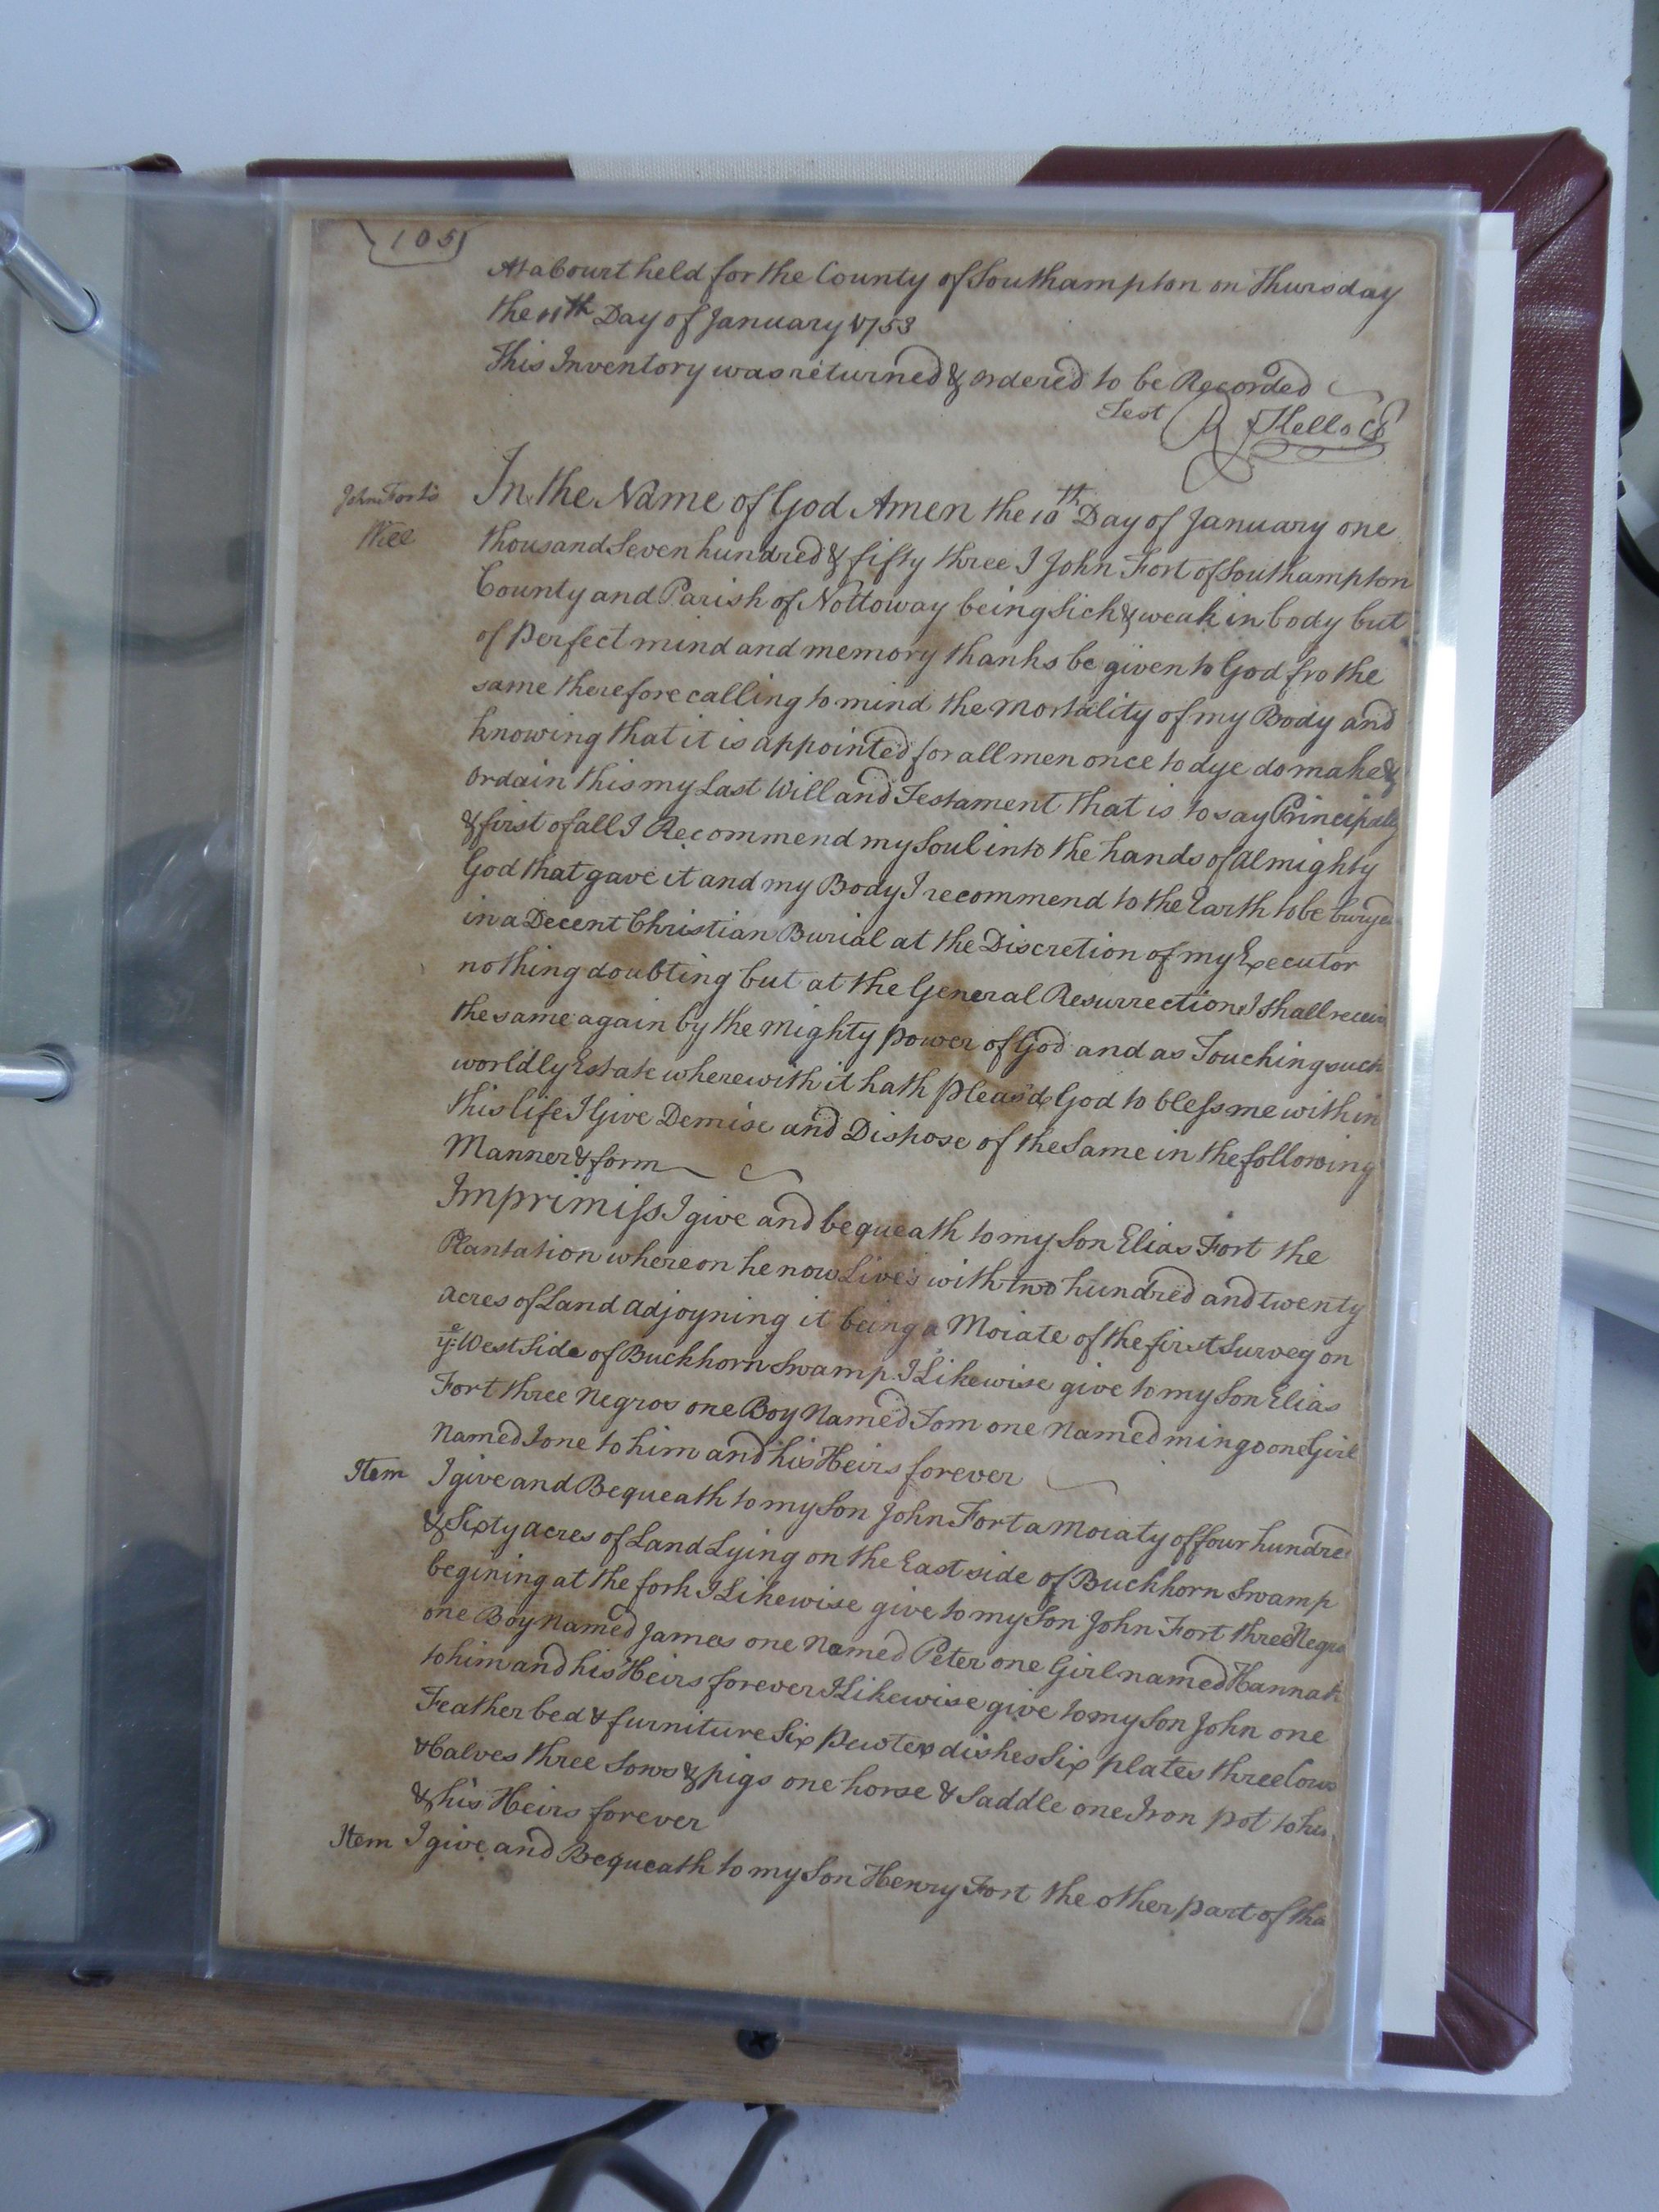 105
At a Court held for the County of Southampton on Thursday
the 11th Day of January 1753
This Inventory was returned & ordered to be Recorded
Test R Kello CC
John Fort's
Will
In the Name of God Amen the 10th Day of January one
thousand Seven hundred & fifty three I John Fort of Southampton
County and Parish of Nottoway being Sick & weak in body but
of Perfect mind and memory thanks be given to God fro the
same therefore calling to mind the Mortality of my Body and
knowing that it is appointed for all men once to dye do make &
Ordain this my Last Will and Testament that is to say Principally
& first of all I Recommend my Soul into the hands of Almighty
God that gave it and my Body I recommend to the Earth to be burye
in a Decent Christian Burial at the Discretion of my Executor
nothing doubting but at the General Resurrection I Shall receiv
the same again by the Mighty power of God and as Touching such
worldly Estate wherewith it hath pleas'd God to bless me with in
this life I Give Demise and Dispose of the Same in the following
Manner & form
Imprimiss I give and bequeath to my Son Elias Fort the
Plantation whereon he now Lives with two hundred and twenty
Acres of Land adjoyning it being a Moiate of the first Survey on
ye West Side of Buckhorn Swamp I Likewise give to my Son Elias
Fort three Negros one Boy Named Tom one Named mingo one Girl
Named Jone to him and his Heirs forever
Item I give and Bequeath to my Son John Fort a Moiaty of four hundre
& Sixty acres of Land Lying on the East side of Buckhorn Swamp
begining at the fork I Likewise give to my Son John Fort three Negro
one Boy Named James one Named Peter one Girl named Hannah
to him and his Heirs forever I Likewise give to my Son John one
Feather bed & furniture Six Pewter dishes Six plates three Cows
& Calves three Sows & pigs one horse & Saddle one Iron pot to hi
& his Heirs forever
Item I give and Bequeath to my Son Henry Fort the other part of tha